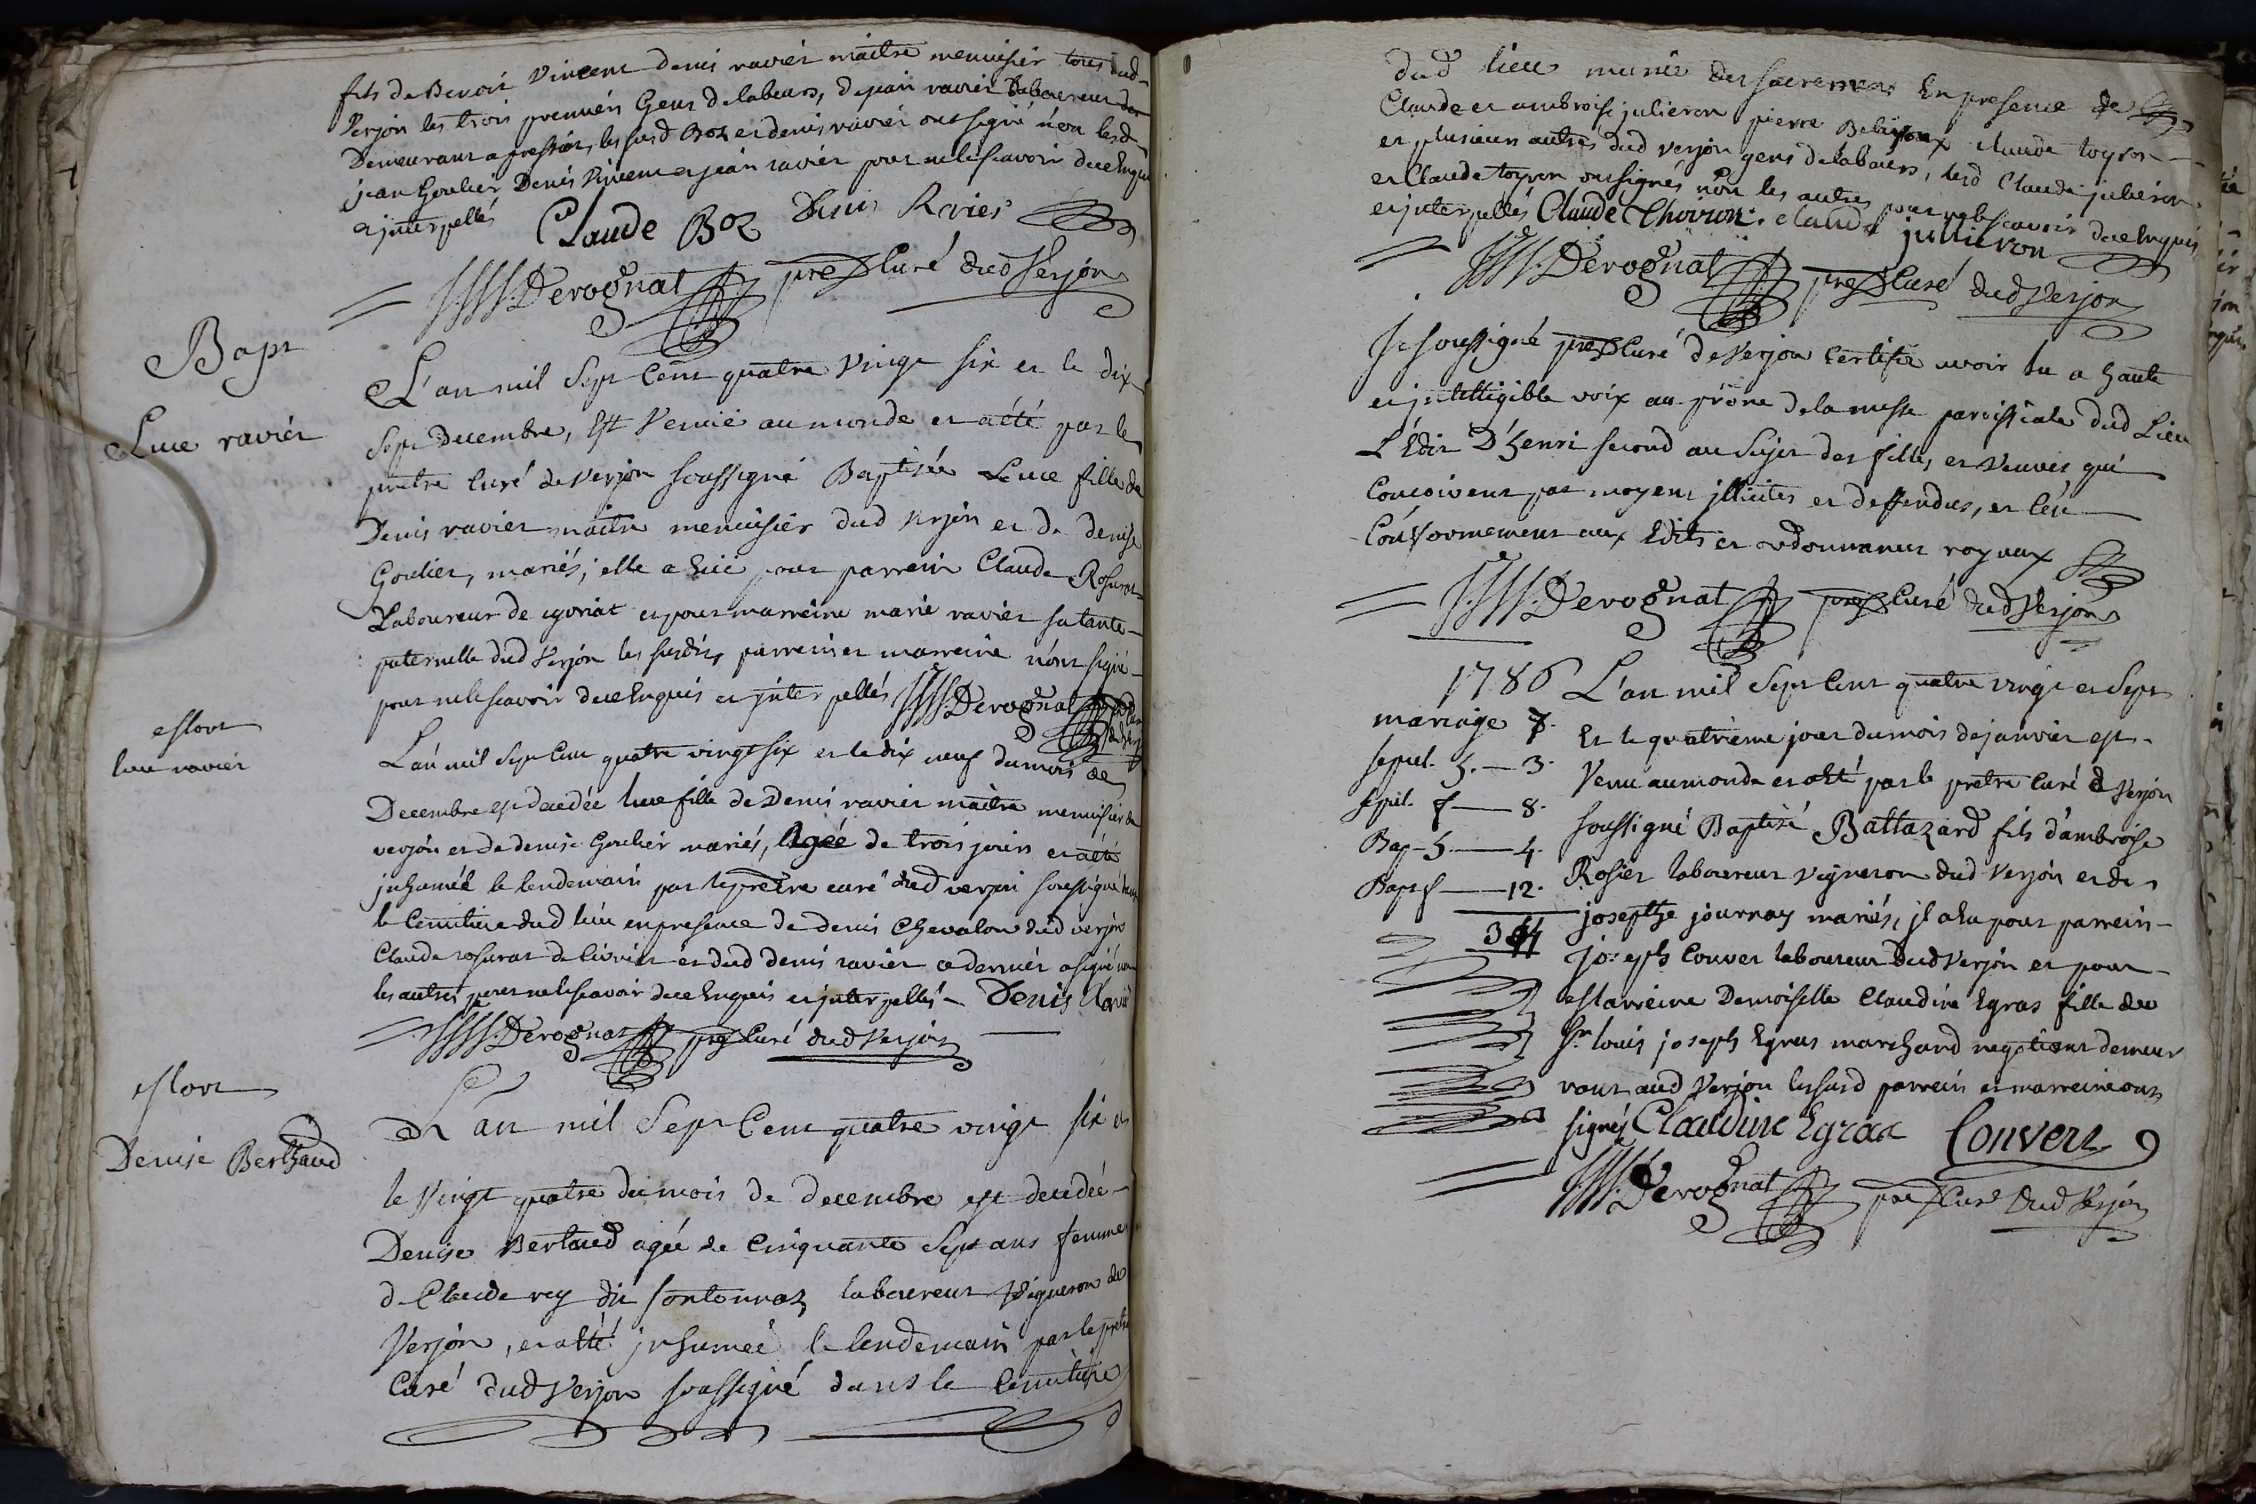 fils de Benoit Vincent denis ravier maitre menuisier tous dud
Verjon les trois premiers Gens de labeurs, de jean ravier laboureur
Demeurant a pressiat, les susd Boz et denis ravier ont signé non lesd
jean Goulier Denis Vincent et jean ravier pour ne le scavoir de ce Enquis
et interpellés Claude Boz Denis Ravier
Derognat pretre Curé dud Verjon
Bapt
Luce ravier
L'an mil Sept Cent quatre Vingt Six et le dix
Sept Decembre, Est Venüe au monde et a été par le
pretre Curé de Verjon soussigné Baptisée Luce fille de
Denis ravier maitre menuisier dud Verjon et de denise
Goulier, mariés; elle a Eue pour parrein Claude Rosurat
Laboureur de civriat et pour marreine marie ravier sa tante
paternelle dud Verjon les susdits parrein et marreine n'ont signé
pour ne le scavoir de ce Enquis et jnterpellés Derognat
Mort
luce ravier
L'an mil Sept Cent quatre vingt six et le dix neuf du mois de
Decembre est decedée luce fille de Denis ravier maitre menuisier de
verjon et de denise Goulier mariés, Agée de trois jours et a été
jnhumée le lendemain par le pretre curé dud verjon soussigné dans
le Cemitiere dud lieu en presence de denis Chevalon dud verjon
Claude rosurat de Civriat et dud denis ravier ce dernier a signé non
les autres pour ne le scavoir de ce Enquis et jnterpellés Denis Ravier
Derognat pretre Curé dud Verjon
Mort
Denise Berthaud
L'an mil Sept Cent quatre vingt six et
le Vingt quatre du mois de decembre est decedée
Denise Bertaud agée de Cinquante Sept ans femme
de Claude rey dit fontonnaz laboureur Vigneron de
Verjon, et a été jnhumée le lendemain par le pretre
Curé dud Verjon soussigné dans le Cemitiere
dud lieu munie des sacremens En presence de
Claude et ambroise julieron pierre claude toyron
et plusieurs autres dud verjon gens de labeurs, lesd Claude julieron
et Claude toyron ont signés non les autres pour ne le scavoir de ce Enquis
et jnterpellés Claude Thoiron. claude jullieron
Derognat pretre Curé dud Verjon
Je soussigné pretre Curé de Verjon Certifie avoir lu a haute
et jntelligible voix au prône de la messe paroissiale dud Lieu
L'Edit D'henri second au Sujet des filles et Veuves qui
Concoivent par moyens jllicites et deffendus, et Ceu
Conformement aux Edits et ordonnances royaux
Derognat pretre Curé dud Verjon
1786
mariage 7.
sepul. h. — 3.
sepul. f — 8.
Bap – h. — 4.
Bapt f — 12.
34
L'an mil Sept Cent quatre vingt et Sept
Et le quatrieme jour du mois de janvier est
Venu au monde et a été par le pretre Curé de Verjon
soussigné Baptisé Baltazard fils d'ambroise
Rosier laboureur vigneron dud Verjon et de
josephte journay mariés, jl a Eu pour parrein
joseph Convert laboureur Dud Verjon et pour
Marreine Demoiselle Claudine Egras fille de
Sr. louis joseph Egras marchand negotient demeu
rant aud Verjon les susd parrein et marreine ont
signés Claudine Egraz Convert
Derognat pretre Curé dud Verjon